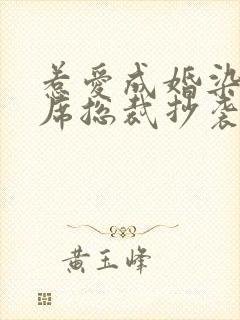 惹爱成婚染
席总裁抄袭
黄玉峰